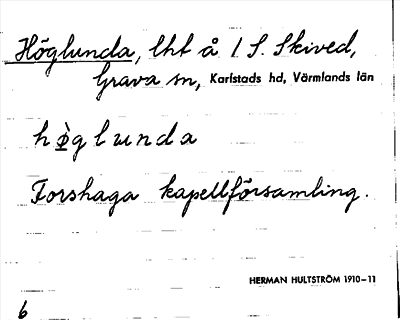 Höglunda, lht å 1 S. Skived,
Grava sn, Karlstads hd, Värmlands län
hø̀glunda
Forshaga kapellförsamling.
HERMAN HULTSTRÖM 1910–11
6